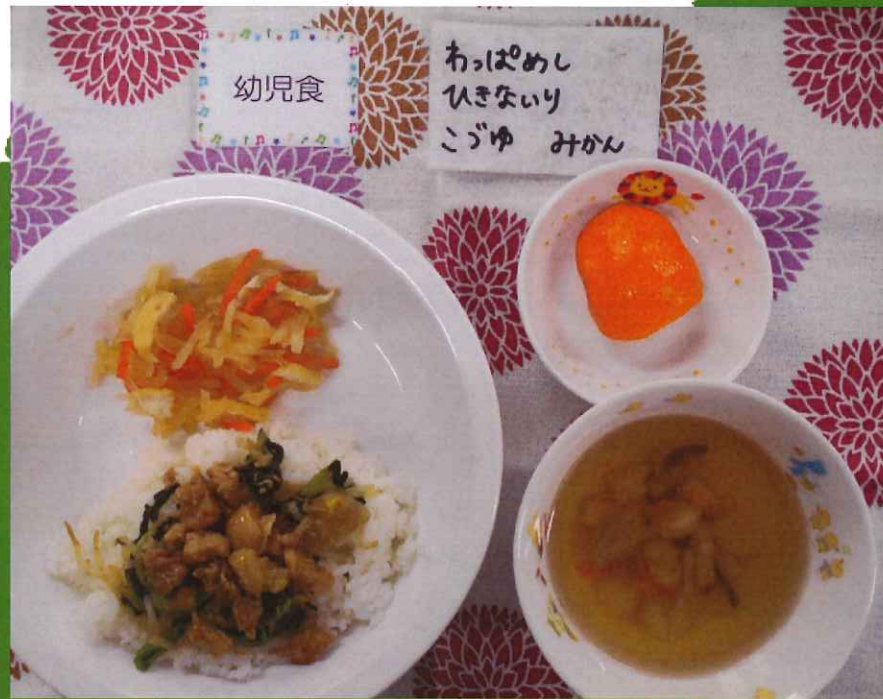 幼児食
わっぱめし
ひきないり
こづゆ　みかん